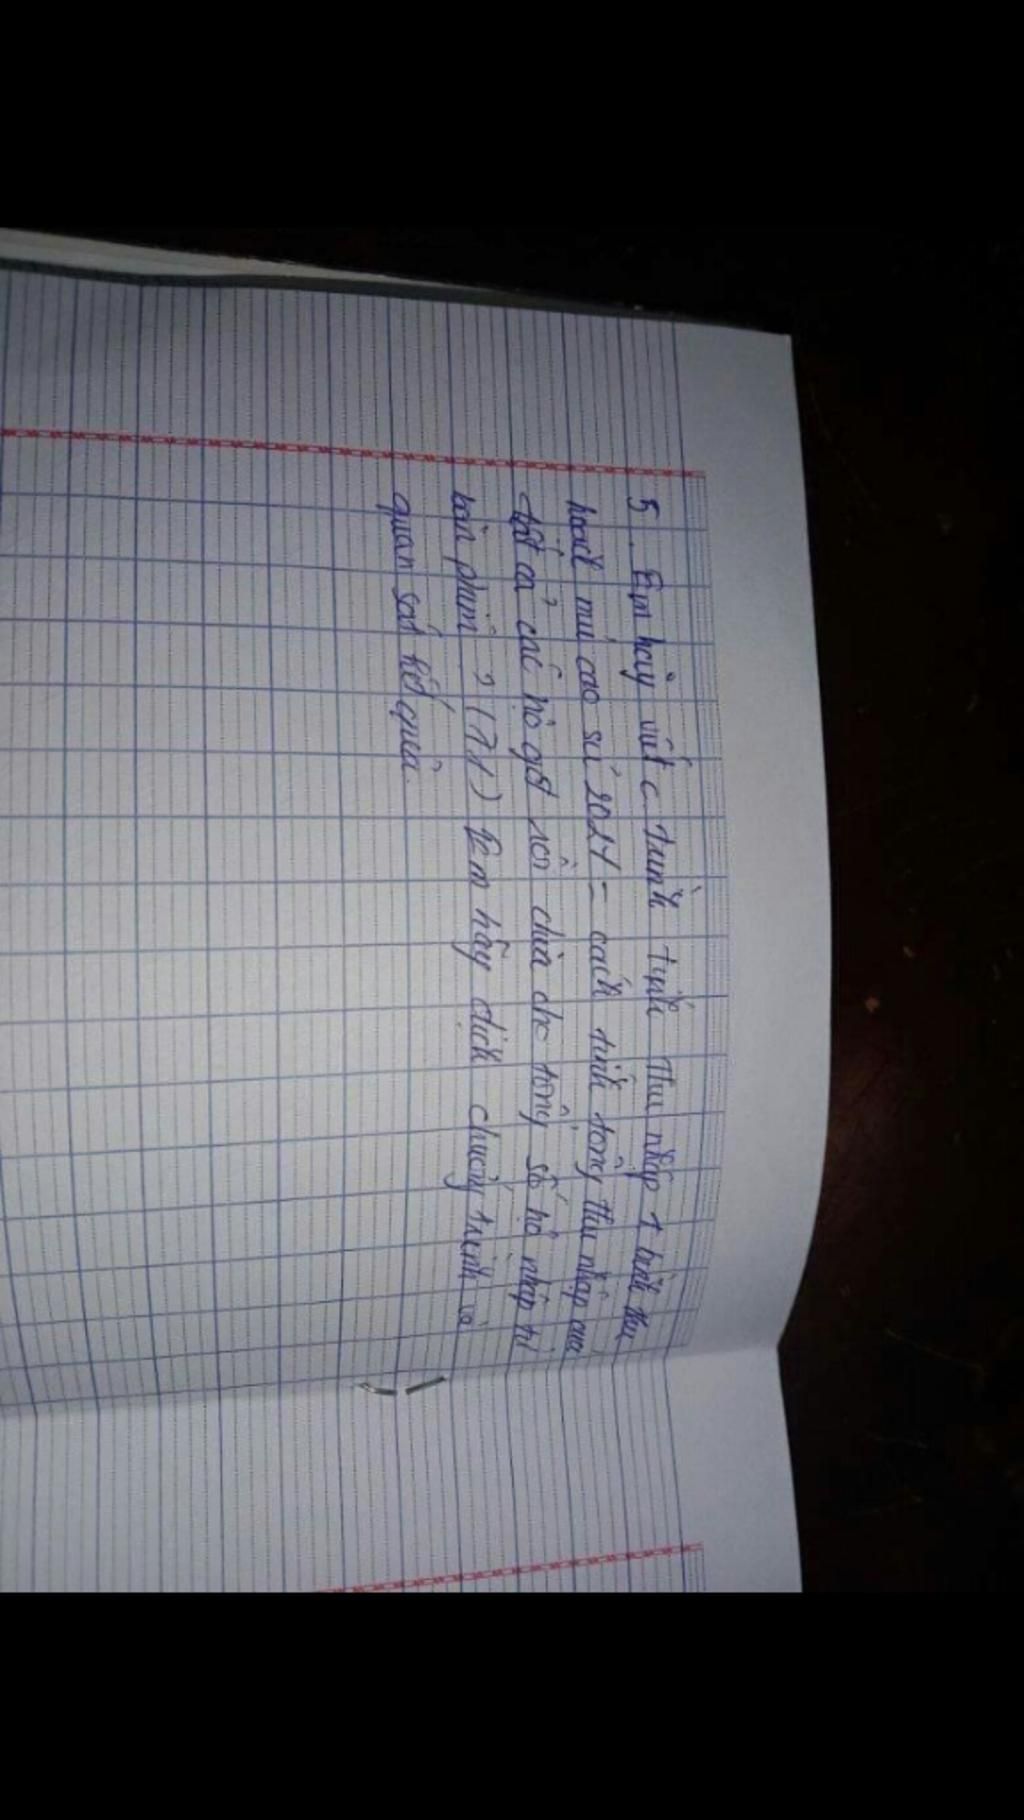 5. Em hãy viết c. trình tính thu nhập 1 bình thu
hoạch mủ cao su 2021 = cách tính tổng thu nhập của
tất cả các hộ gđ rồi chia cho tổng số hộ nhập từ
bàn phím ? (11) Em hãy dịch chương trình và
quan sát kết quả.